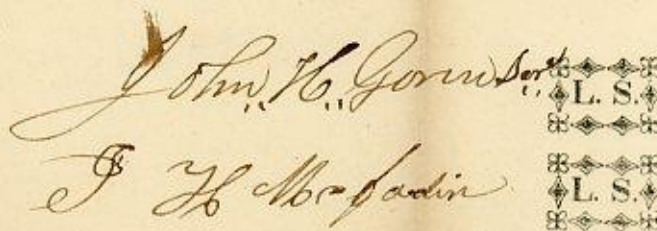 John, H,, Goven Sor, L. S.
J H Mcfadin L. S.